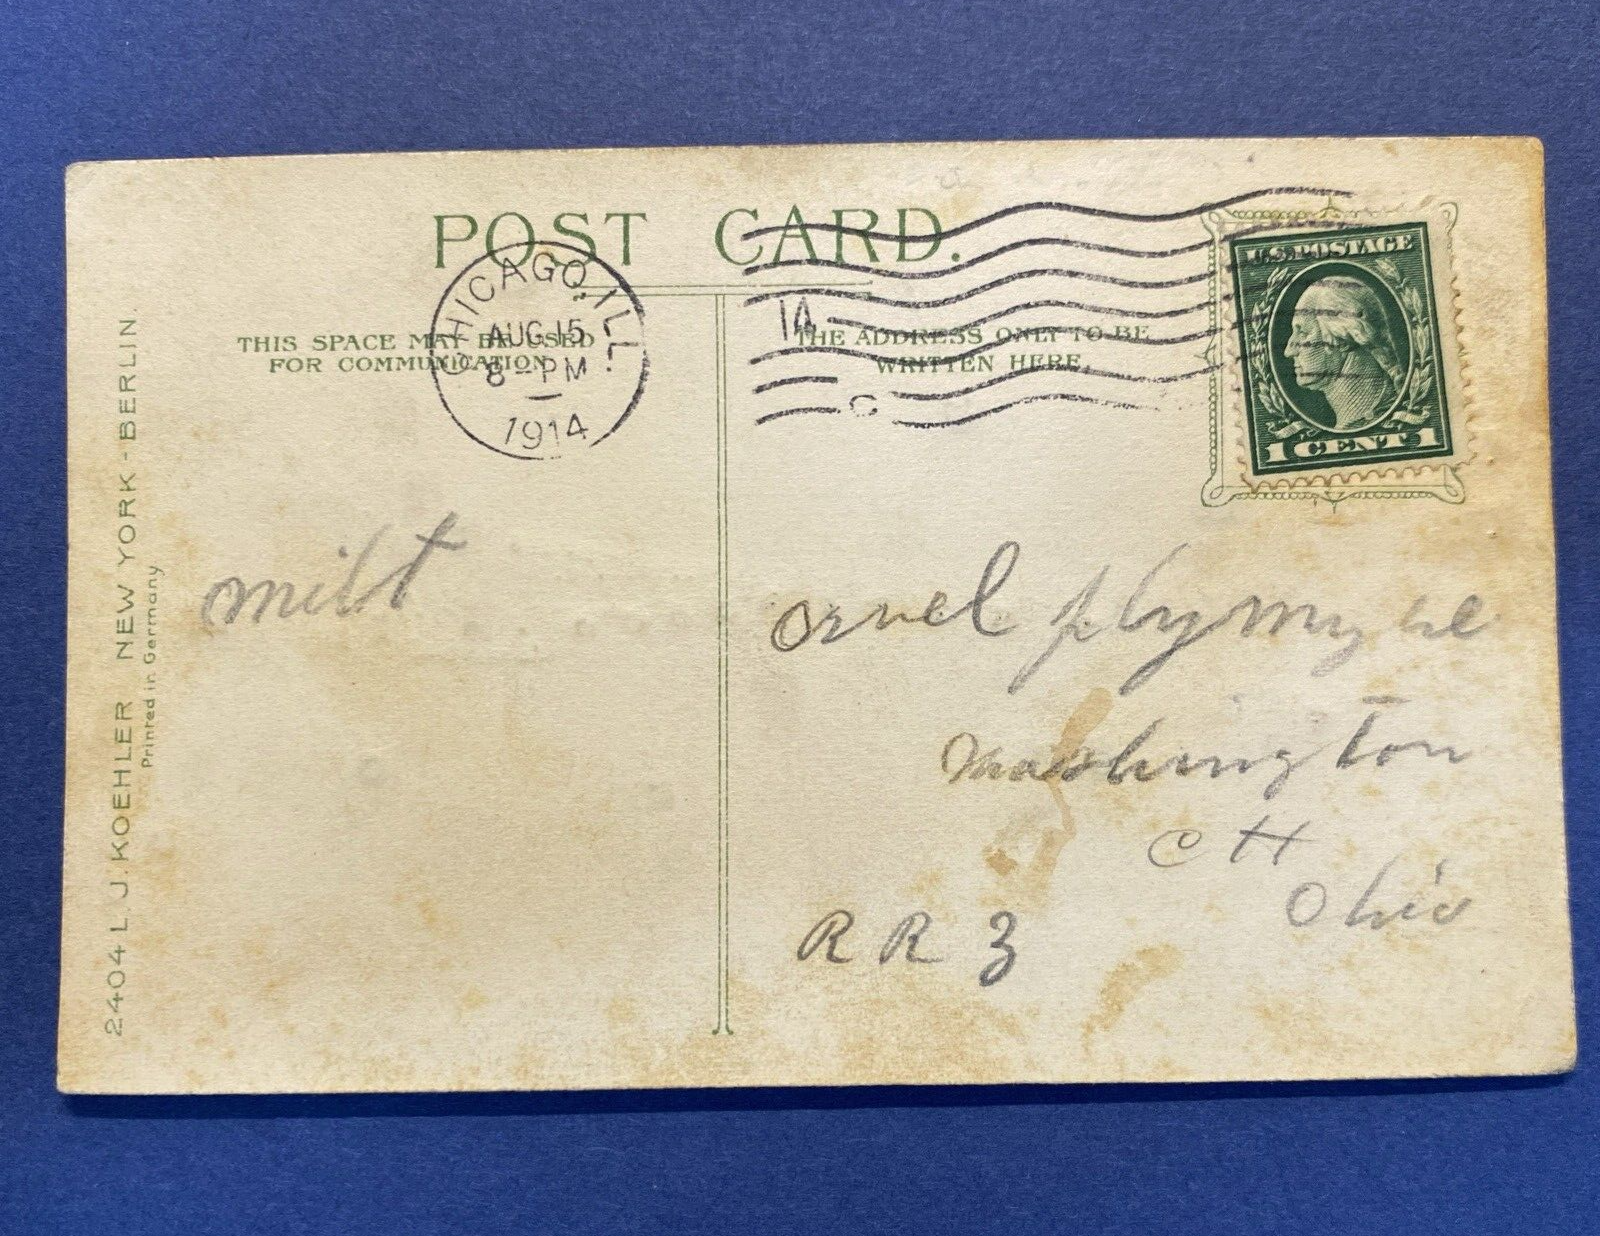 POST CARD.
CHICAGO, ILL.
AUG 15
8 - PM
1914
THIS SPACE MAY BE USED
FOR COMMUNICATION
1A
C
THE ADDRESS ONLY TO BE
WRITTEN HERE.
U.S. POSTAGE
1 CENT 1
milt
orvel
Washington
C H
Ohio
R R 3
2404 L. J. KOEHLER NEW YORK - BERLIN.
Printed in Germany